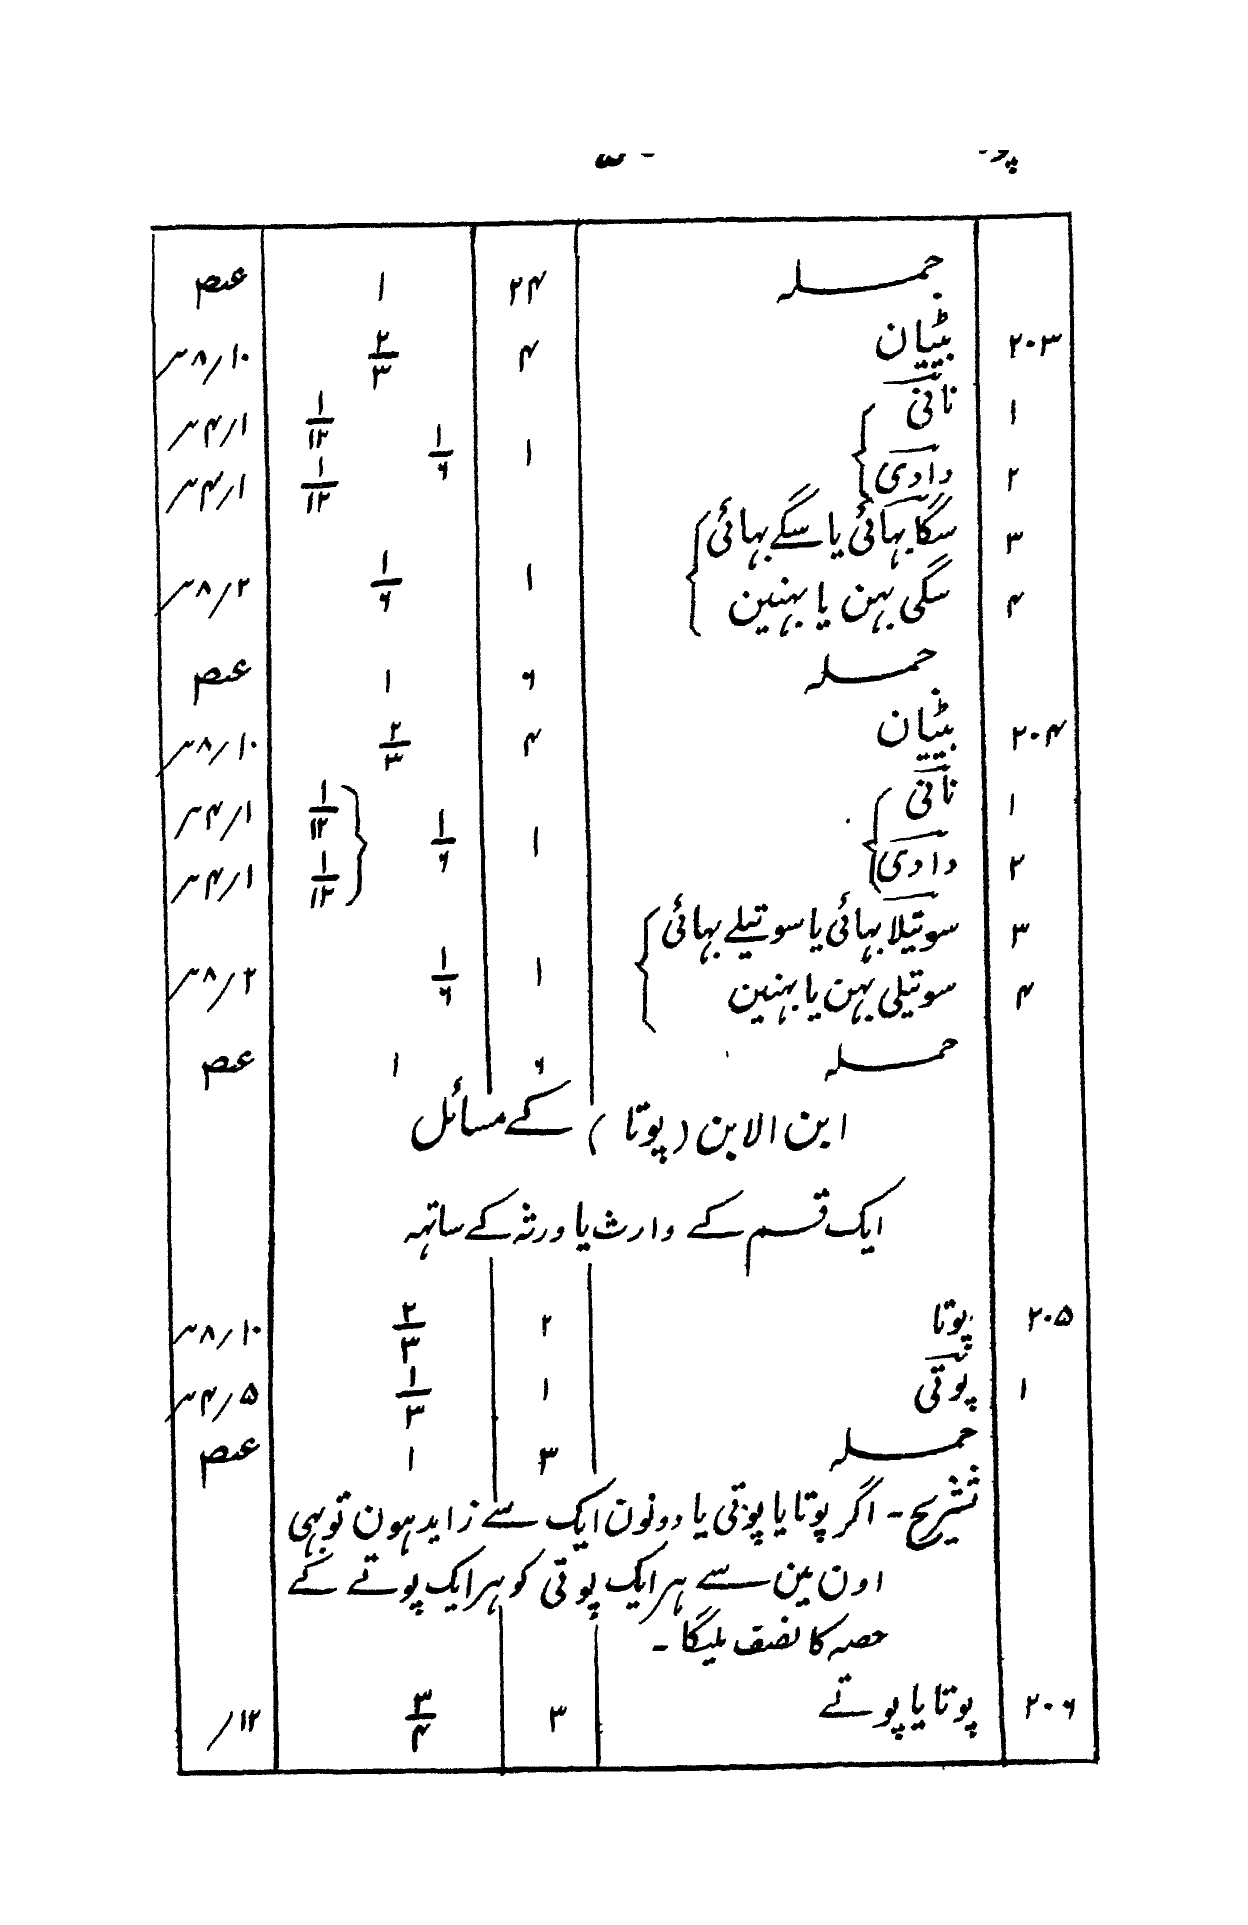 جملہ ۲۴ ۱ عصہ
۲۰۳ بیٹیان ۴ ۲/۳ ۱۰/۸
۱ نانی ۱ ۱/۶ ۱/۱۲ ۱/۴
۲ دادی ۱/۱۲ ۱/۴
۳ سگا بہائی یا سگے بہائی
۴ سگی بہن یا بہنین ۱ ۱/۶ ۲/۸
جملہ ۶ ۱ عصہ
۲۰۴ بیٹیان ۴ ۲/۳ ۱۰/۸
۱ نانی ۱ ۱/۶ ۱/۱۲ ۱/۴
۲ دادی ۱/۱۲ ۱/۴
۳ سوتیلا بہائی یا سوتیلے بہائی
۴ سوتیلی بہن یا بہنین ۱ ۱/۶ ۲/۸
جملہ ۶ ۱ عصہ
ابن الابن (پوتا) کے مسائل
ایک قسم کے وارث یا ورثہ کے ساتھہ
۲۰۵ پوتا ۲ ۲/۳ ۱۰/۸
۱ پوتی ۱ ۱/۳ ۵/۴
جملہ ۳ ۱ عصہ
تشریح - اگر پوتا یا پوتی یا دونون ایک سے زاید ہون تو بہی
اون مین سے ہر ایک پوتی کو ہر ایک پوتے کے
حصہ کا نصف ملیگا -
۲۰۶ پوتا یا پوتے ۳ ۳/۴ ۱۲/